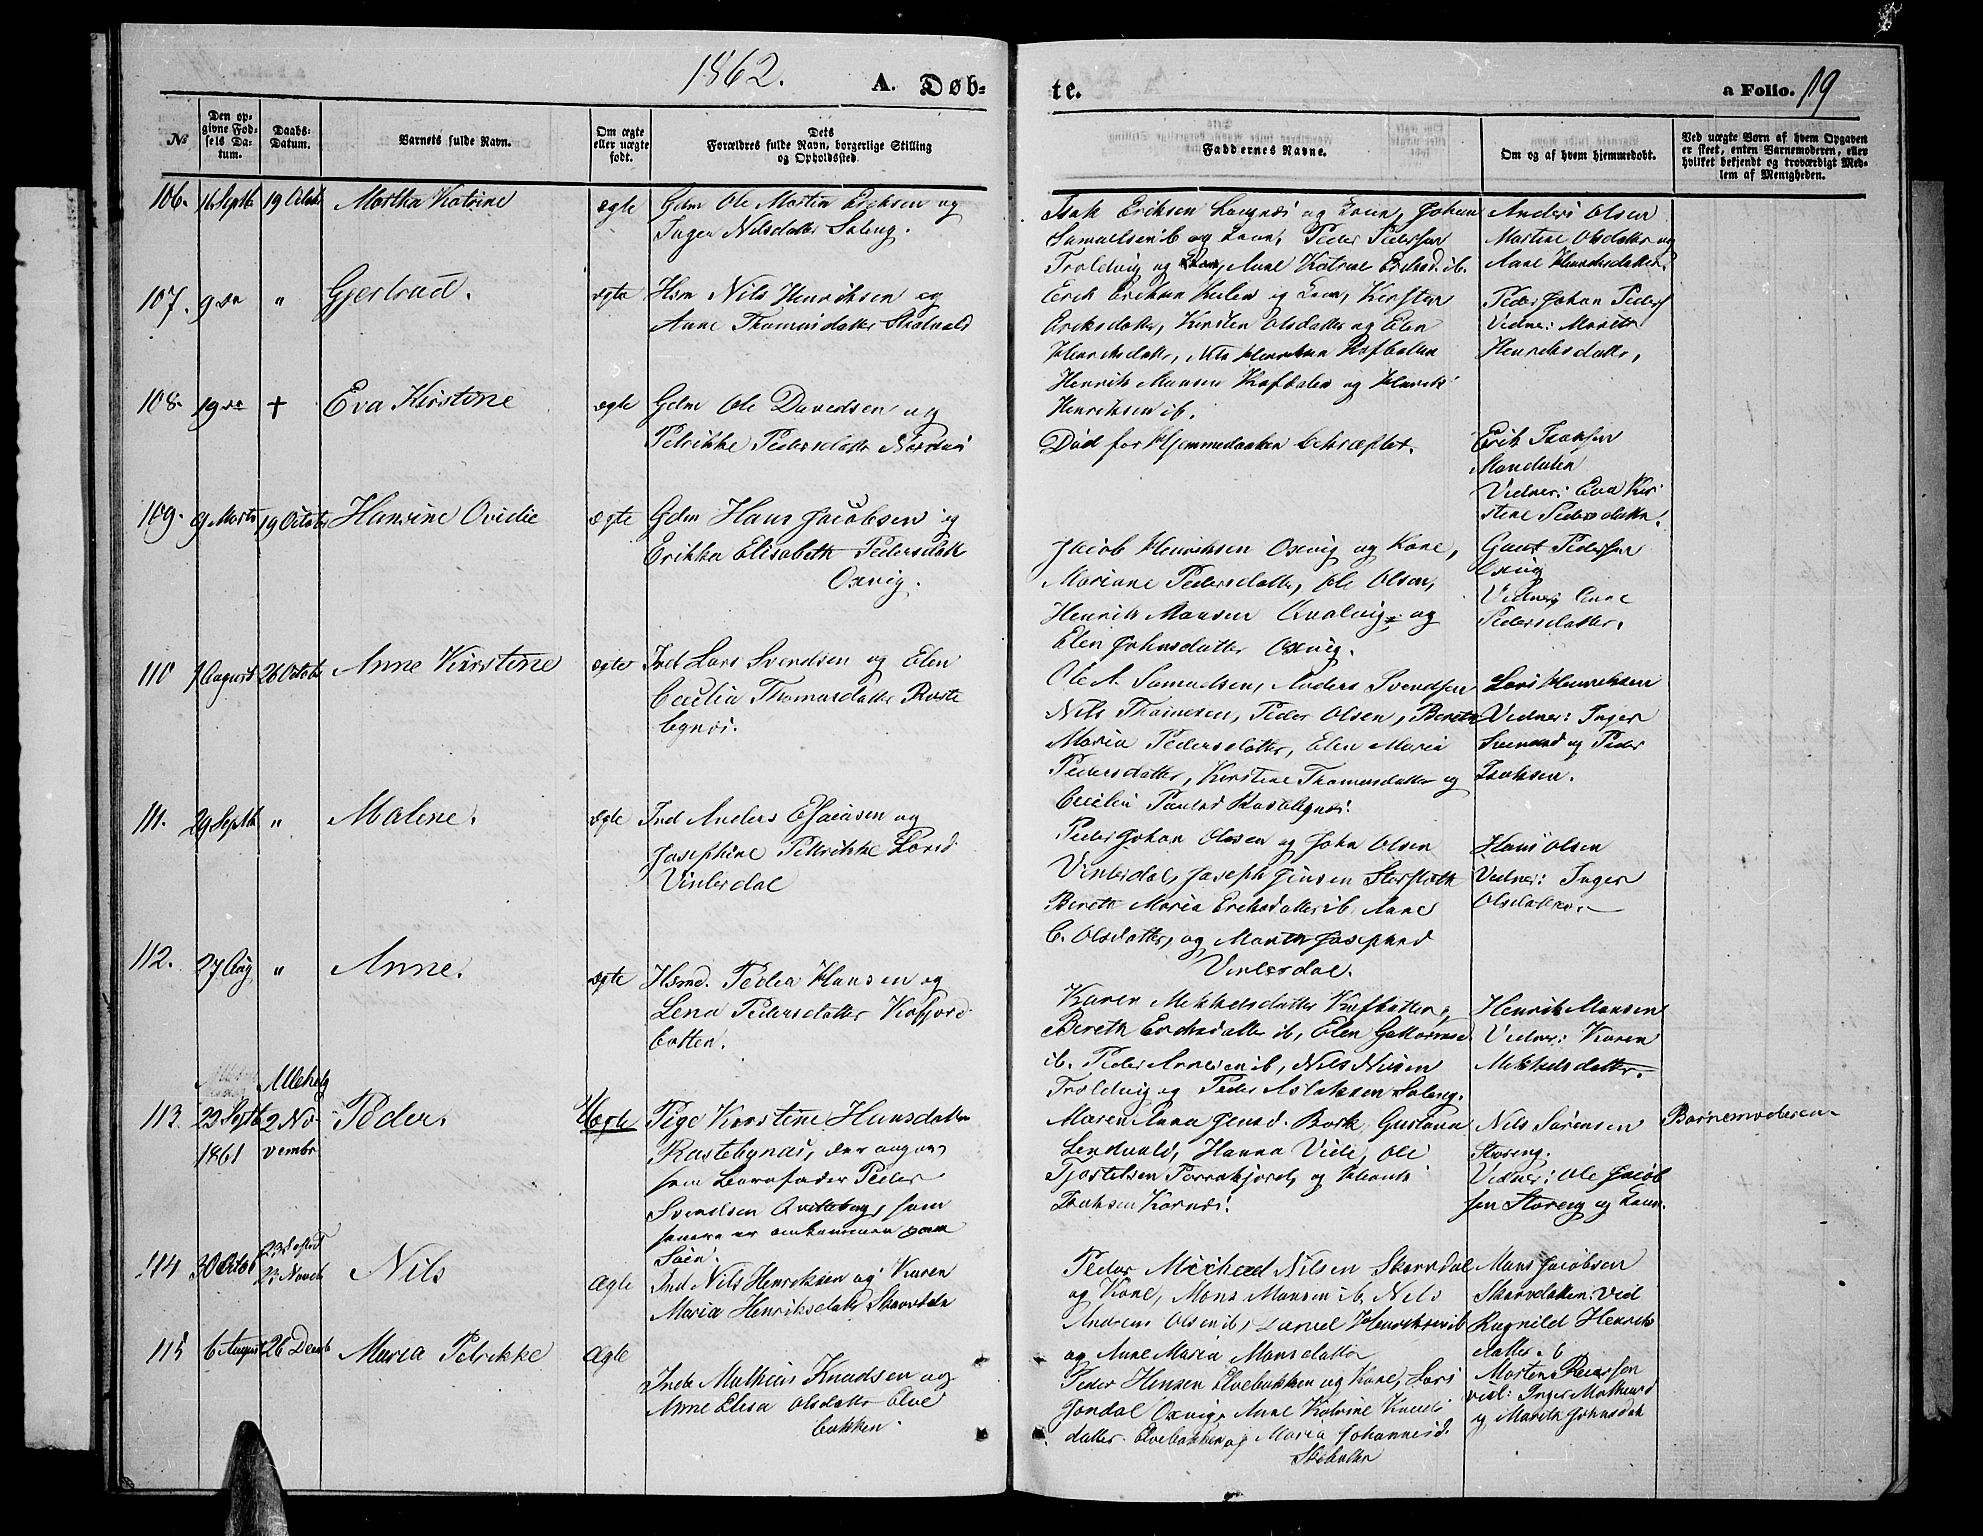 1862.
A. Døb-
te.
a Folio. 119
№
Den op-
givne Fød-
sels Da-
tum.
Daabs-
Datum.
Barnets fulde Navn.
Om ægte
eller uægte
født.
Dets
Forældres fulde Navn, borgerlige Stilling
og Opholdssted.
Faddernes Navne.
Om og af hvem hjemmedøbt.
Ved uægte Børn af hvem Opgaven
er skeet, enten Barnemoderen, eller
hvilket bekjendt og troværdigt Med-
lem af Menigheden.
106. 16 Septb 19 Octob Martha Katrine ægte Gdm Ole Martin Eriksen og
Inger Nilsdatter Soleng.
Isak Eriksen Langnæs og Kone, Johan
Samuelsen ib og Kone, Peder Pedersen
Troldvig og Kone, Anne Katrine Eriksd. ib.
Anders Olsen
Martine Olsdatter og
Anne Henriksdatter.
107. 9 de " Gjertrud. ægte Hsm Nils Henriksen og
Anne Thomasdatter
Erick Eriksen og Kone, Kirsten
Eriksdatter, Kirsten Olsdatter og Elen
Henriksdatter, Nils Henriksen
Henrik Monsen og Henrik
Henriksen ib.
Peder Johan Peders
Vidner: Marith
Henriksdatter,
108. 19 de + Eva Kirstine ægte Gdm Ole Davidsen og
Petrikke Pedersdatter Nordnæs
Død før Hjemmedaaben bekræftet.
Erik Isaksen
Mandalen
Vidner: Eva Kir
stine Pedersdatter.
109. 9 Marts 19 Octob Hansine Ovidie ægte Gdm Hans Jacobsen og
Erikka Elisabeth Pedersdatt
Oxvig.
Jacob Henriksen Oxvig og Kone,
Mariane Pedersdatter, Ole Olsen,
Henrik Monsen Qvalvig, og
Elen Johnsdatter Oxvig.
Gunt Pedersen
Oxvig
Vidner, Anne
Pedersdatter.
110 1 August 26 Octob Anne Kirstine ægte Ind Lars Svendsen og Elen
Cecilia Thomasdatter Raste
bynæs.
Ole A. Samuelsen, Anders Svendsen
Nils Thomesen, Peder Olsen, Bereth
Maria Pedersdatter, Elen Maria
Pedersdatter, Kirstine Thomasdatter og
Cecilia Paulsd
Lars Henriksen
Vidner: Inger
Svensend og Peder
Isaksen.
111. 29 Septb " Malene. ægte Ind Anders Esaiasen og
Josephine Petrikke Larsd
Vinterdal
Peder Johan Olsen og John Olsen
Vinterdal, Joseph Jensen
Bereth Maria Eriksdatter ib, Anne
C. Olsdatter, og Marith Josephsd
Vinterdal.
Hans Olsen
Vidner: Inger
Olsdatter.
112. 27 Aug " Anne. ægte Hsmd. Peder Hansen og
Lena Pedersdatter Kofjord
botten.
Karen Mikkelsdatter
Bereth Eriksdatter ib, Elen
ib. Peder Arnesen ib, Nils Nilsen
Troldvig og Peder Aslaksen Soleng.
Henrik Monsen
Vidner: Karen
Mikkelsdatter.
113. 23 Septb
1861
Allehelg
2 No-
vembr
Peder. Uægte Pige Kirstine Hansdatter
Rastebynæs, der angav
som Barnefader Peder
Svendsen Qvitebing, som
senere er omkommen paa
Søen.
Maren Anna Jensd. Bork, Gustava
Lendvald, Hanna Vide, Ole
og
Isaksen Kornæs.
Nils Sørensen
Storeng.
Vidner: Ole Jacob
sen Storeng og Kone.
Barnemoderen
114 30 Octob 23 Novb Nils Ægte Ind Nils Henriksen og Karen
Maria Henriksdatter Skarvdaln
Peder Michael Nilsen Skarvdal
og Kone, Mons Monsen ib, Nils
Andreas Olsen ib, Henriksen ib
og Anne Maria Monsdatter
Mons Jacobsen
Skarvdalen. Vid
Ragnild Henriks
datter ib
115 6 August 26 Decemb Maria Petrikke Ægte
Inds Mathias Knudsen og
Anne Elisa Olsdatter Elve
bakken.
Peder Hansen Elvebakken og Kone, Lars
Jondal Oxvig, Anne Katrine
datter Elvebakken og Maria Johannesd.
Skibotten
Morten Pedersen
vid: Inger Mathisd
og Marith Johnsdat